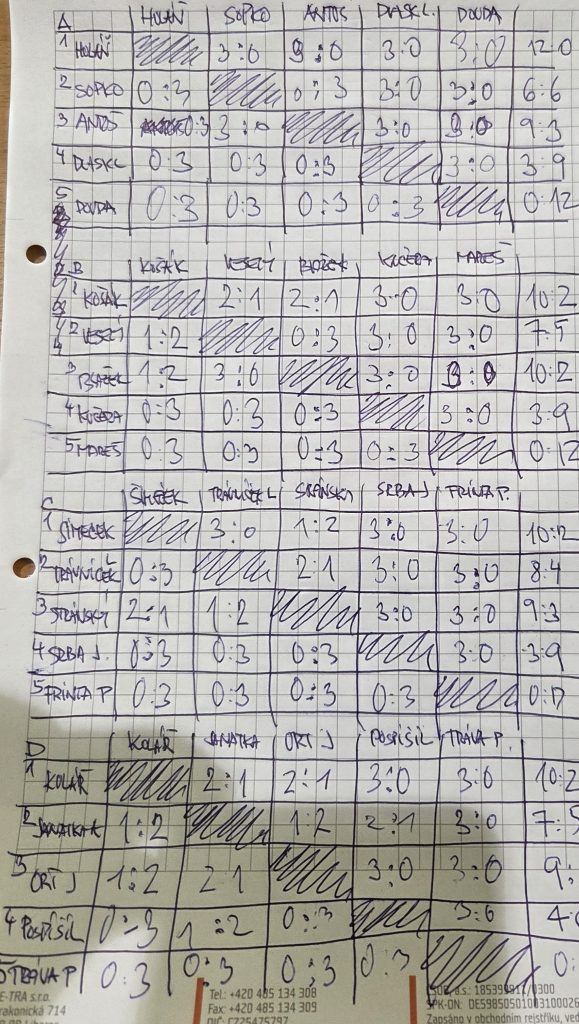 A HOLAŇ SOPKO ANTOŠ DLASKL. DOUDA
1 HOLAŇ 3:0 3:0 3:0 3:0 12:0
2 SOPKO 0:3 0:3 3:0 3:0 6:6
3 ANTOŠ 0:3 3:0 3:0 3:0 9:3
4 DLASKL 0:3 0:3 0:3 3:0 3:9
5 DOUDA 0:3 0:3 0:3 0:3 0:12
B KOŠÁK VESELÝ BLAŽEK KUČERA MAREŠ
1 KOŠÁK 2:1 2:1 3:0 3:0 10:2
2 VESELÝ 1:2 0:3 3:0 3:0 7:5
3 BLAŽEK 1:2 3:0 3:0 3:0 10:2
4 KUČERA 0:3 0:3 0:3 3:0 3:9
5 MAREŠ 0:3 0:3 0:3 0:3 0:12
C ŠIMEČEK TRÁVNÍČEK L STRÁNSKÝ SRBA J FRINTA P.
1 ŠIMEČEK 3:0 1:2 3:0 3:0 10:2
2 TRÁVNÍČEK 0:3 2:1 3:0 3:0 8:4
3 STRÁNSKÝ 2:1 1:2 3:0 3:0 9:3
4 SRBA J. 0:3 0:3 0:3 3:0 3:9
5 FRINTA P 0:3 0:3 0:3 0:3
D KOLÁŘ JANATKA ORT J POSPÍŠIL TRÁVA P.
1 KOLÁŘ 2:1 2:1 3:0 3:0 10:2
2 JANATKA 1:2 1:2 2:1 3:0 7:5
3 ORT J 1:2 2:1 3:0 3:0 9:
4 POSPÍŠIL 0:3 1:2 0:3 3:0 4:
5 TRÁVA P 0:3 0:3 0:3 0:3 0:
E-TRA s.r.o. Tel.: +420 485 134 308 ČSOB, a.s.: 185399911/0300
rakonická 714 Fax: +420 485 134 309 SPK-DN:
Zapsáno v obchodním rejstříku, ved